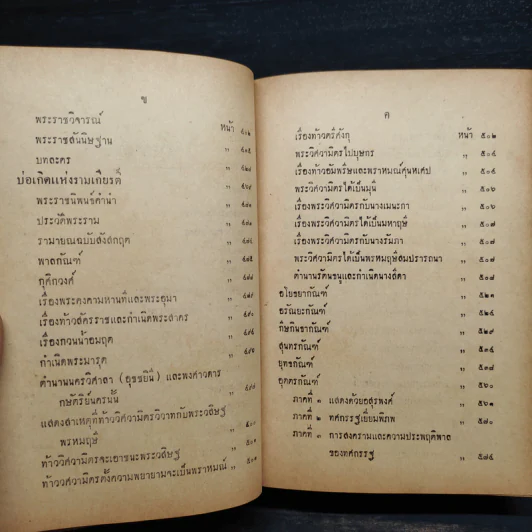 ฃ
พระราชวิจารณ์ หน้า
พระราชสันนิษฐาน ,,
บทละคร ,,
บ่อเกิดแห่งรามเกียรติ์ ,,
พระราชนิพนธ์คำนำ ,,
ประวัติพระราม ,,
รามายณฉบับสังสกฤต ,,
พาลกัณฑ์ ,,
กุศิกวงศ์ ,,
เรื่องพระคงคามหานทีและพระอุมา ,,
เรื่องท้าวสัคราชและกำเนิดพระสาคร ,,
เรื่องกวนน้ำอมฤต ,,
กำเนิดพระมารุต ,,
ตำนานนครวิศาลา (อุชชยินี) และพงศาวดาร
กษัตริย์นครนั้น ,,
แสดงสาเหตุที่ท้าววิศวามิตรวิวาทกับพระวสิษฐ
พรหมฤษี ,,
ท้าววิศวามิตรจะเอาชนะพระวสิษฐ ,,
ท้าววิศวามิตรตั้งความพยายามจะเป็นพราหมณ์ ,,
ค
เรื่องท้าวตรีศังกุ หน้า ๕๐๒
พระวิศวามิตรไปบุษกร ,, ๕๐๔
เรื่องท้าวอัมพรีษะและพราหมณ์ศุนหเศป ,, ๕๐๔
พระวิศวามิตรได้เป็นมุนี ,, ๕๐๖
เรื่องพระวิศวามิตรกับนางเมนะกา ,, ๕๐๖
เรื่องพระวิศวามิตรได้เป็นมหาฤษี ,, ๕๐๗
เรื่องพระวิศวามิตรกับนางรัมภา ,, ๕๐๗
พระวิศวามิตรได้เป็นพรหมฤษีสมปรารถนา ,, ๕๐๗
ตำนานรัตนธนูและกำเนิดนางสีดา ,, ๕๐๘
อโยธยากัณฑ์ ,, ๕๒๑
อรัณยะกัณฑ์ ,, ๕๒๕
กิษกินธากัณฑ์ ,, ๕๒๙
สุนทรกัณฑ์ ,, ๕๓๕
ยุทธกัณฑ์ ,, ๕๓๗
อุตตรกัณฑ์ ,, ๕๖๐
ภาคที่ ๑ แสดงด้วยอสุรพงศ์ ,, ๕๖๑
ภาคที่ ๒ ทศกรรฐเยี่ยมพิภพ ,, ๕๗๐
ภาคที่ ๓ การสงครามและความประพฤติพาล
ของทศกรรฐ ,, ๕๗๕